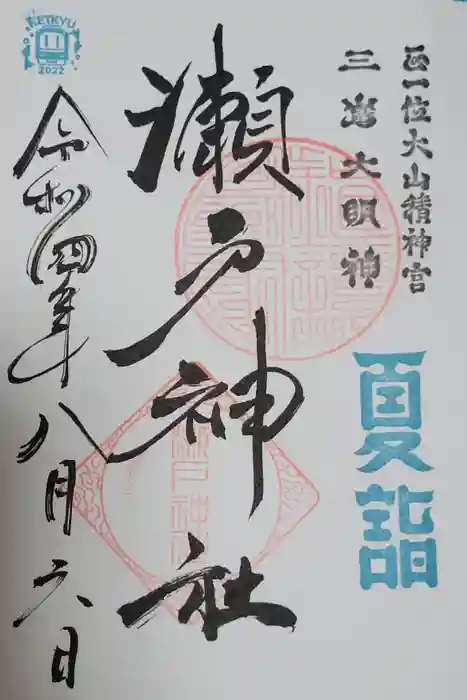 正一位大山積神宮
三嶌大明神
夏詣
瀬戸神社
令和四年八月六日
KEIKYU
2022